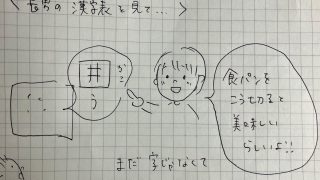 <長男の漢字表を見て...>
井
かこ
う
食パンを
こう切ると
美味しい
らしいよ!!
まだ字じゃなくて